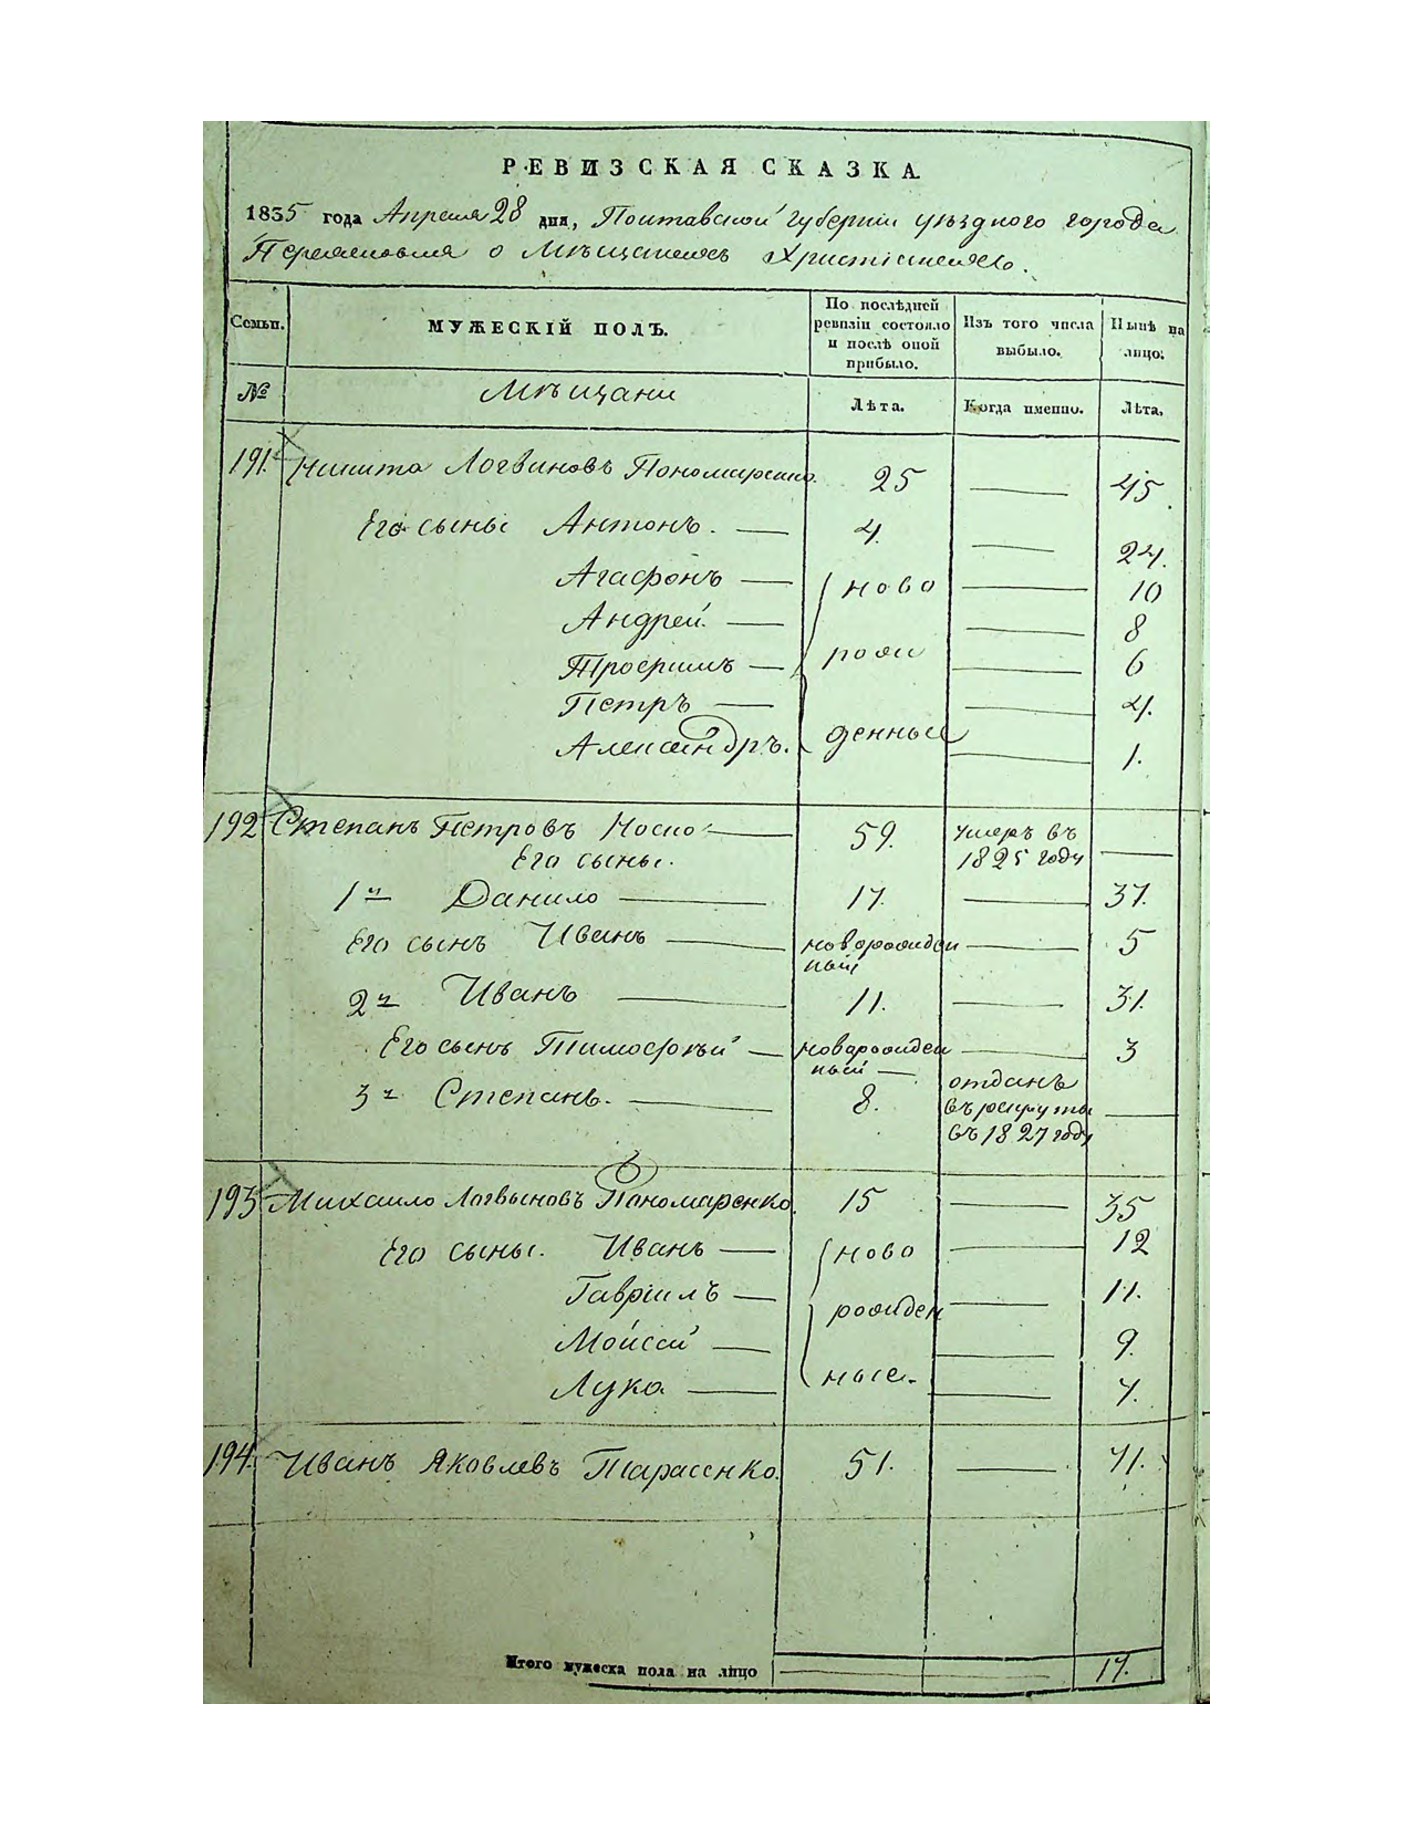 РЕВИЗСКАЯ СКАЗКА.
1835 года Апреля 28 дня, Полтавской губернiи уѣздного города
Переяславля о Мѣщанахъ Христiанахъ.
Семьи. МУЖЕСКIЙ ПОЛЪ. По послѣдней ревизiи состояло и послѣ оной прибыло. Изъ того числа выбыло. Нынѣ на лицо.
№ Мѣщани Лѣта. Когда именно. Лѣта.
191. Никита Логвиновъ Пономаренко. 25 — 45.
Его сыны Антонъ. — 4. — 24.
Агафонъ — ново — 10
Андрей. — — 8
Трофимъ — рож — 6
Петръ — — 4.
Александръ. денные — 1.
192 Степанъ Петровъ Носко — 59. умеръ въ 1825 году —
Его сыны.
1й Данило — 17. — 37.
Его сынъ Иванъ — новорожден ный — 5
2й Иванъ — 11. — 31.
Его сынъ Тимофѣй — новарожден ный — — 3
3й Степанъ. — 8. отданъ въ рекруты въ 1827 году —
193 Михаило Логвыновъ Пономаренко. 15 — 35
Его сыны. Иванъ — ново — 12
Гаврiилъ — рожден — 11.
Мойсей — — 9.
Лука — ные. — 7.
194. Иванъ Яковлевъ Тарасенко. 51. — 71.
Итого мужеска пола на лицо — — 17.